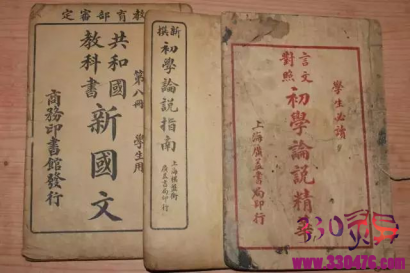 教育部審定
共和國
教科書
新國文
第八冊
學生用
商務印書館發行
新撰
初學論說指南
上海棋盤街
廣益書局印行
言文
對照
初學論說精華
學生必讀
上海廣益書局印行
330灵异
www.330476.com